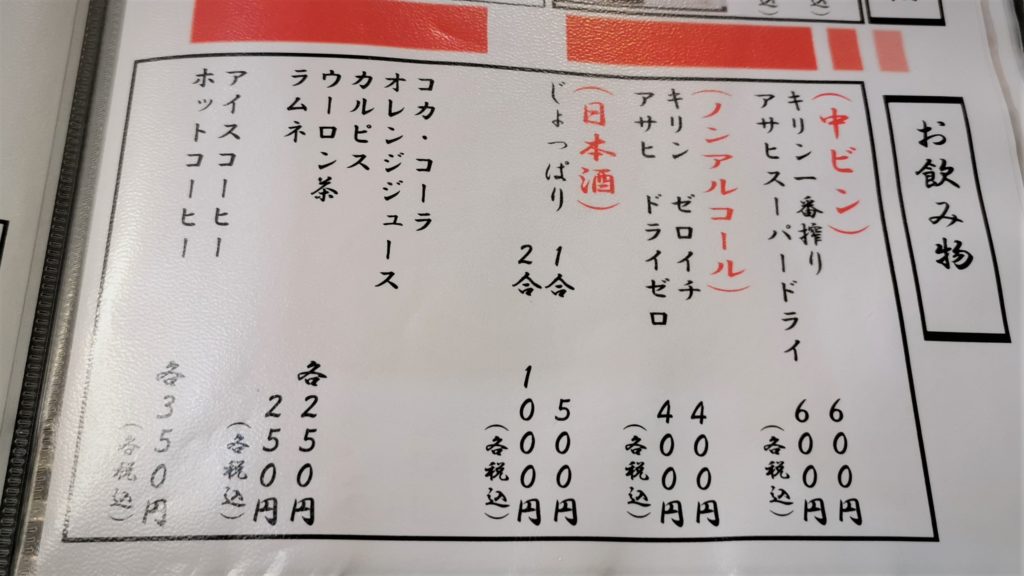 お飲み物
(中ビン)
キリン一番搾り 600円
アサヒスーパードライ 600円
(各税込)
(ノンアルコール)
キリン ゼロイチ 400円
アサヒ ドライゼロ 400円
(各税込)
(日本酒)
じょっぱり 1合 500円
2合 1000円
(各税込)
コカ・コーラ
オレンジジュース
カルピス
ウーロン茶 各250円
ラムネ 250円
(各税込)
アイスコーヒー
ホットコーヒー 各350円
(各税込)